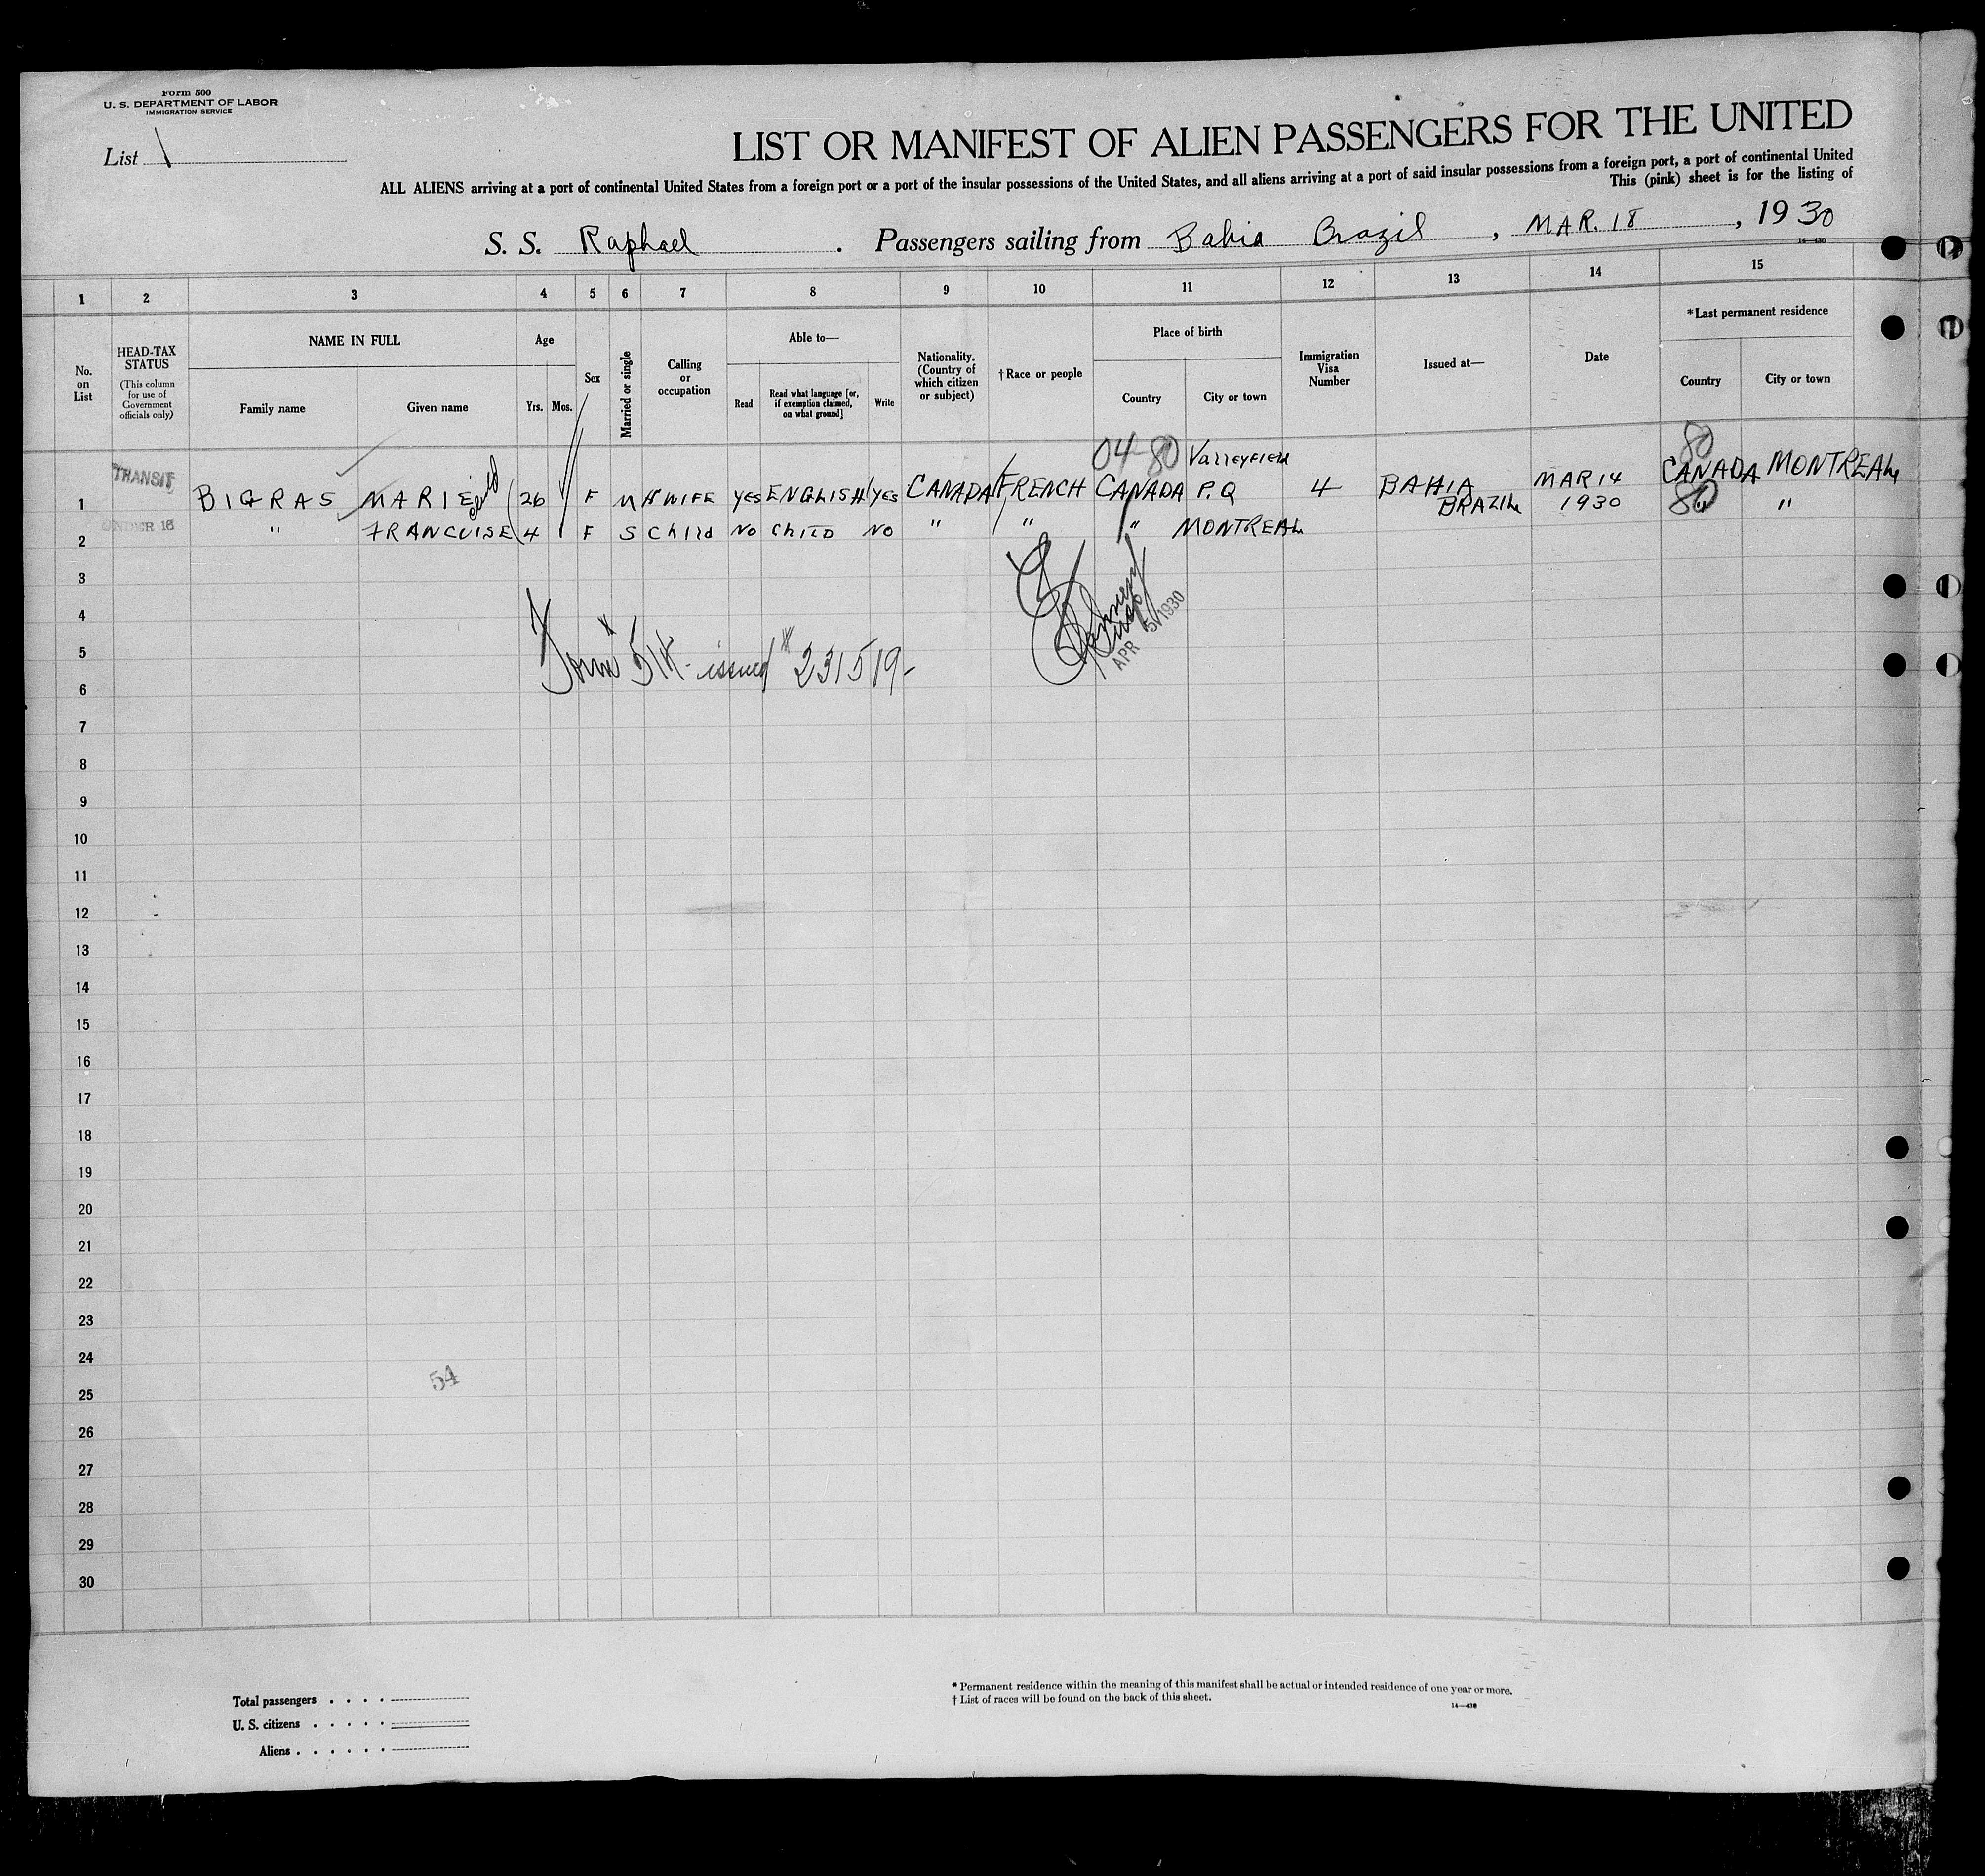 Form 500
U. S. DEPARTMENT OF LABOR
IMMIGRATION SERVICE
List 1
LIST OR MANIFEST OF ALIEN PASSENGERS FOR THE UNITED
ALL ALIENS arriving at a port of continental United States from a foreign port or a port of the insular possessions of the United States, and all aliens arriving at a port of said insular possessions from a foreign port, a port of continental United
This (pink) sheet is for the listing of
S. S. Raphael . Passengers sailing from Bahia Brazil , MAR. 18 , 1930
14—430
1 2 3 4 5 6 7 8 9 10 11 12 13 14 15
No. on List
HEAD-TAX STATUS
(This column for use of Government officials only)
NAME IN FULL
Family name Given name
Age
Yrs. Mos.
Sex
Married or single
Calling or occupation
Able to—
Read
Read what language [or, if exemption claimed, on what ground]
Write
Nationality. (Country of which citizen or subject)
†Race or people
Place of birth
Country City or town
Immigration Visa Number
Issued at—
Date
*Last permanent residence
Country City or town
04-80 Valleyfield 80
TRANSIT
1 BIGRAS MARIE 26 F M H WIFE YES ENGLISH YES CANADA FRENCH CANADA P.Q 4 BAHIA BRAZIL MAR 14 1930 CANADA MONTREAL
UNDER 16
2 " FRANCUISE 4 F S Child No Child No " " " MONTREAL 80 " "
3
4
5
6
Form 514 issued # 231519-
APR 5 1930
7
8
9
10
11
12
13
14
15
16
17
18
19
20
21
22
23
24
54
25
26
27
28
29
30
Total passengers . . . .
U. S. citizens . . . . .
Aliens . . . . . .
* Permanent residence within the meaning of this manifest shall be actual or intended residence of one year or more.
† List of races will be found on the back of this sheet.
14—430